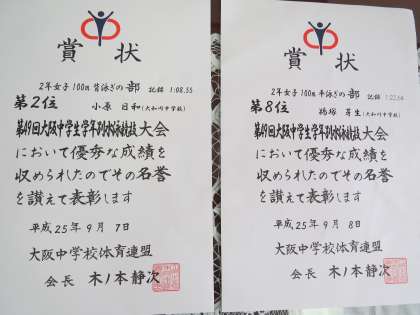 賞状
2年女子100m背泳ぎの部 記録 1:08.55
第2位 小原 日和(大和川中学校)
第49回大阪中学生学年別水泳競技大会
において優秀な成績を
収められたのでその名誉
を讃えて表彰します
平成25年9月7日
大阪中学校体育連盟
会長 木ノ本静次
賞状
2年女子100m平泳ぎの部 記録
第8位 芽生(大和川中学校)
第49回大阪中学生学年別水泳競技大会
において優秀な成績を
収められたのでその名誉
を讃えて表彰します
平成25年9月8日
大阪中学校体育連盟
会長 木ノ本静次